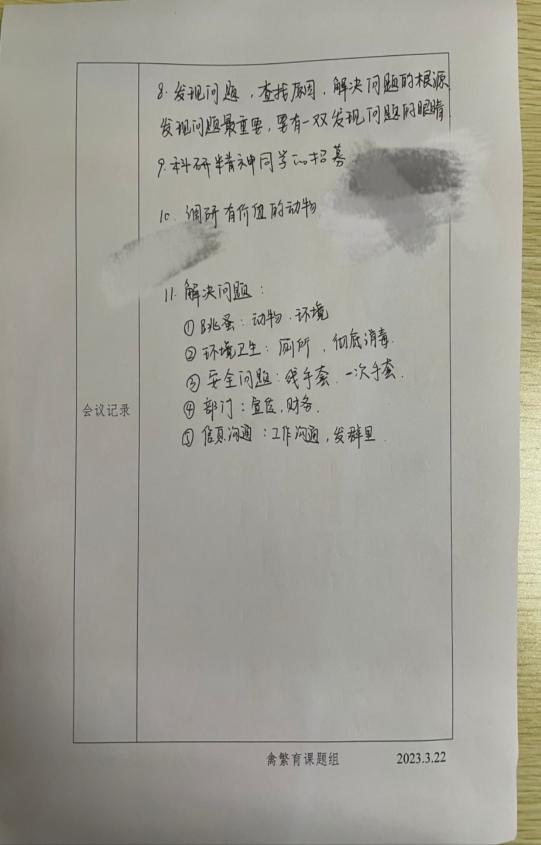 8. 发现问题，查找原因，解决问题的根源
发现问题最重要，要有一双发现问题的眼睛.
9. 科研精神同学的招募
10. 调研有价值的动物
11. 解决问题：
① 跳蚤：动物.环境
② 环境卫生：厕所，彻底消毒.
③ 安全问题：线手套.一次手套.
④ 部门：宣传,财务.
⑤ 信息沟通：工作沟通,发群里.
会议记录
禽繁育课题组 2023.3.22